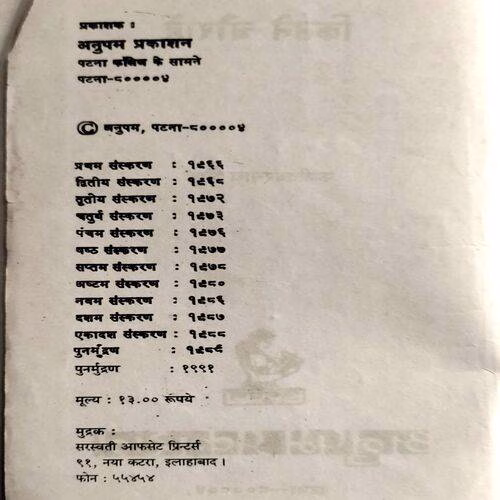 प्रकाशक :
अनुपम प्रकाशन
पटना कॉलेज के सामने
पटना-८००००४
© अनुपम, पटना-८००००४
प्रथम संस्करण : १९६६
द्वितीय संस्करण : १९६८
तृतीय संस्करण : १९७२
चतुर्थ संस्करण : १९७३
पंचम संस्करण : १९७६
षष्ठ संस्करण : १९७७
सप्तम संस्करण : १९७८
अष्टम संस्करण : १९८०
नवम संस्करण : १९८६
दशम संस्करण : १९८७
एकादश संस्करण : १९८८
पुनर्मुद्रण : १९८९
पुनर्मुद्रण : १९९१
मूल्य : १३.०० रूपये
मुद्रक :
सरस्वती आफसेट प्रिन्टर्स
९१, नया कटरा, इलाहाबाद ।
फोन : ५५४५४